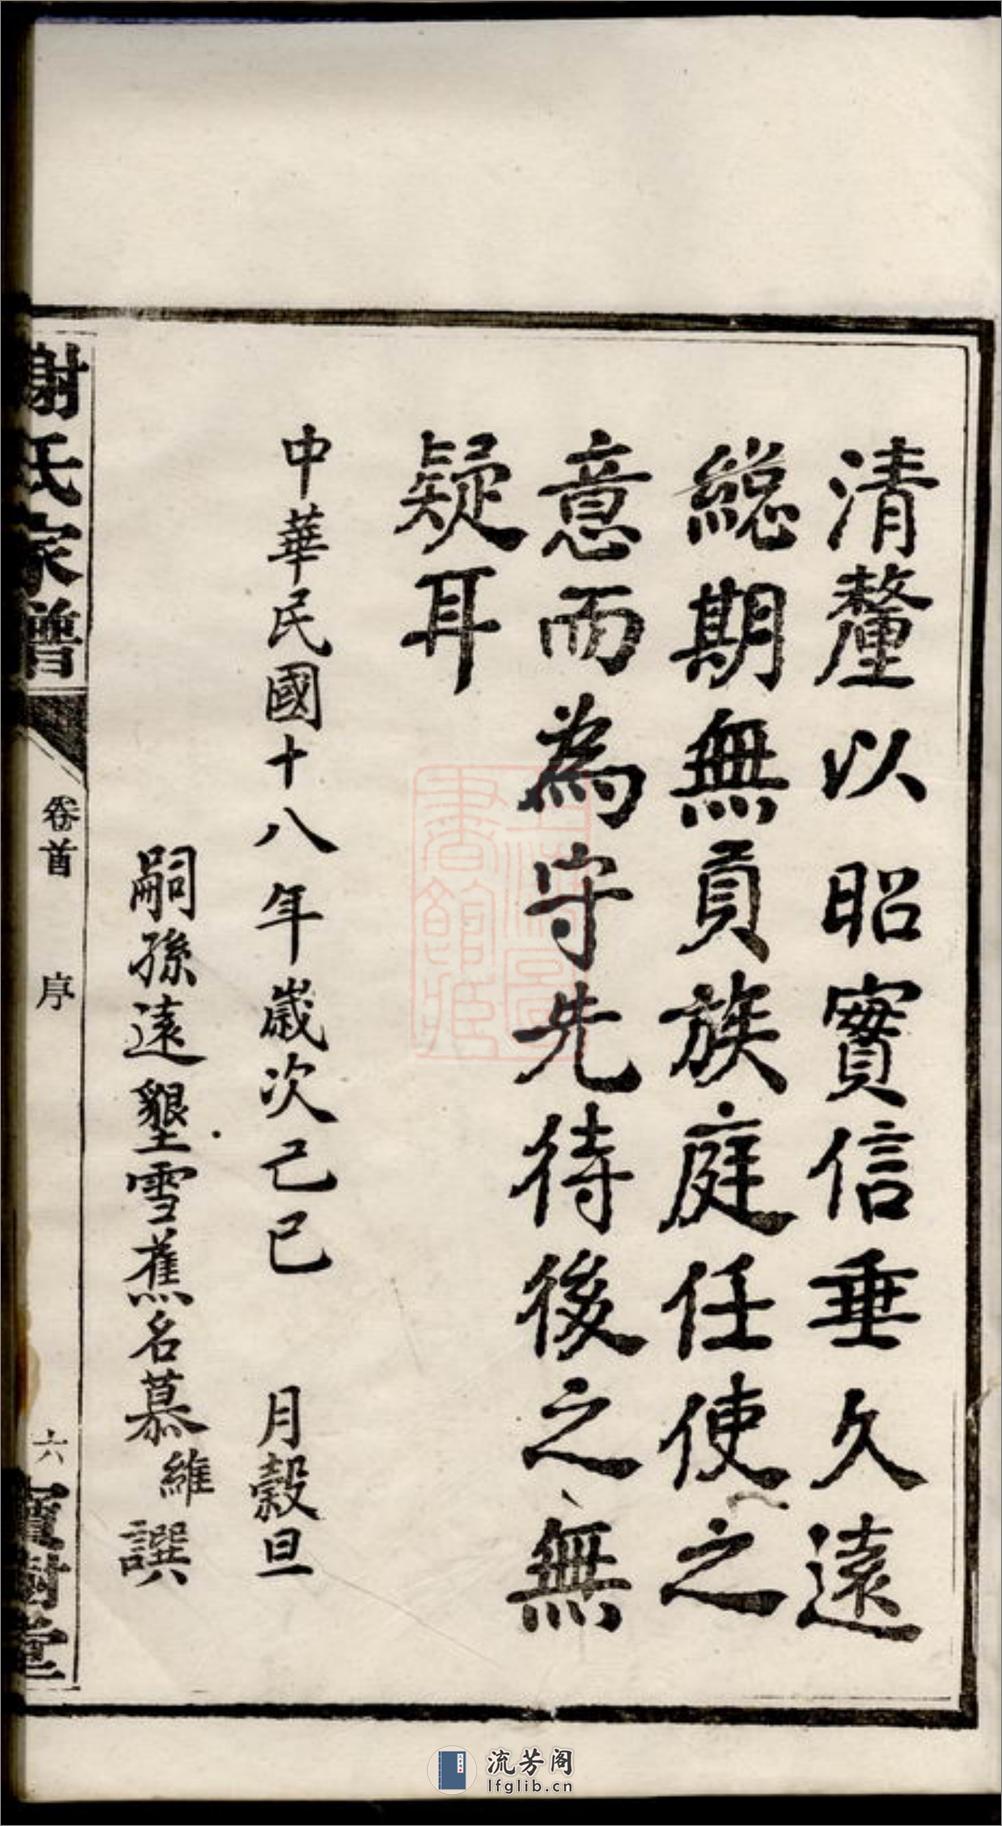 清釐以昭實信垂久遠
緫期無負族庭任使之
意而為守先待後之無
疑耳
中華民國十八年歲次己巳　月穀旦
嗣孫遠墾雪蕉名慕維譔
謝氏家譜
卷首　序
六
寶樹堂
流芳阁
lfglib.cn